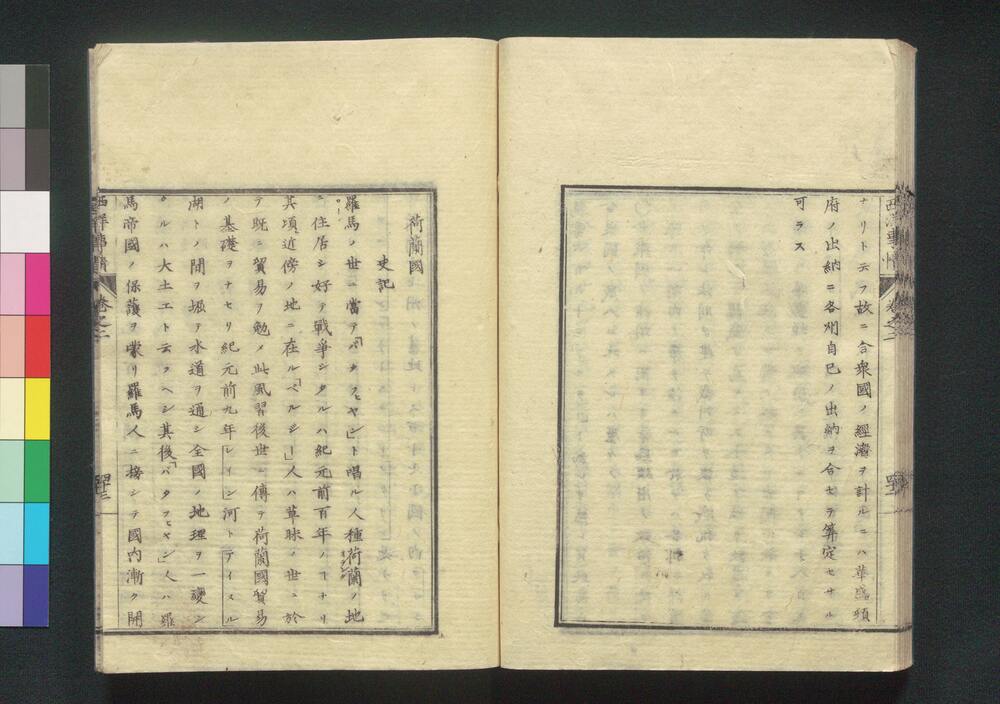 ナリト云フ故ニ合衆國ノ經濟ヲ計ルニハ華盛頓
府ノ出納ニ各州自己ノ出納ヲ合セテ算定セサル
可ラス
西洋事情
卷之二
四十二
荷蘭國
史記
羅馬ノ世ニ當テ「バタフヒヤン」ト唱ル人種荷蘭ノ地
ニ住居シ好テ戰爭シタルハ紀元前百年ノヿナリ
其頃近傍ノ地ニ在ル「ベルジー」人ハ草昧ノ世ニ於
テ既ニ貿易ヲ勉メ此風習後世ニ傳テ荷蘭國貿易
ノ基礎ヲナセリ紀元前九年「レイン」河トテイスル
湖トノ間ヲ堀テ水道ヲ通シ全國ノ地理ヲ一變シ
タルハ大土工ト云フヘシ其後「バタフヒヤン」人ハ羅
馬帝國ノ保護ヲ蒙リ羅馬人ニ接シテ國内漸ク開
西洋事情
卷之二
四十三